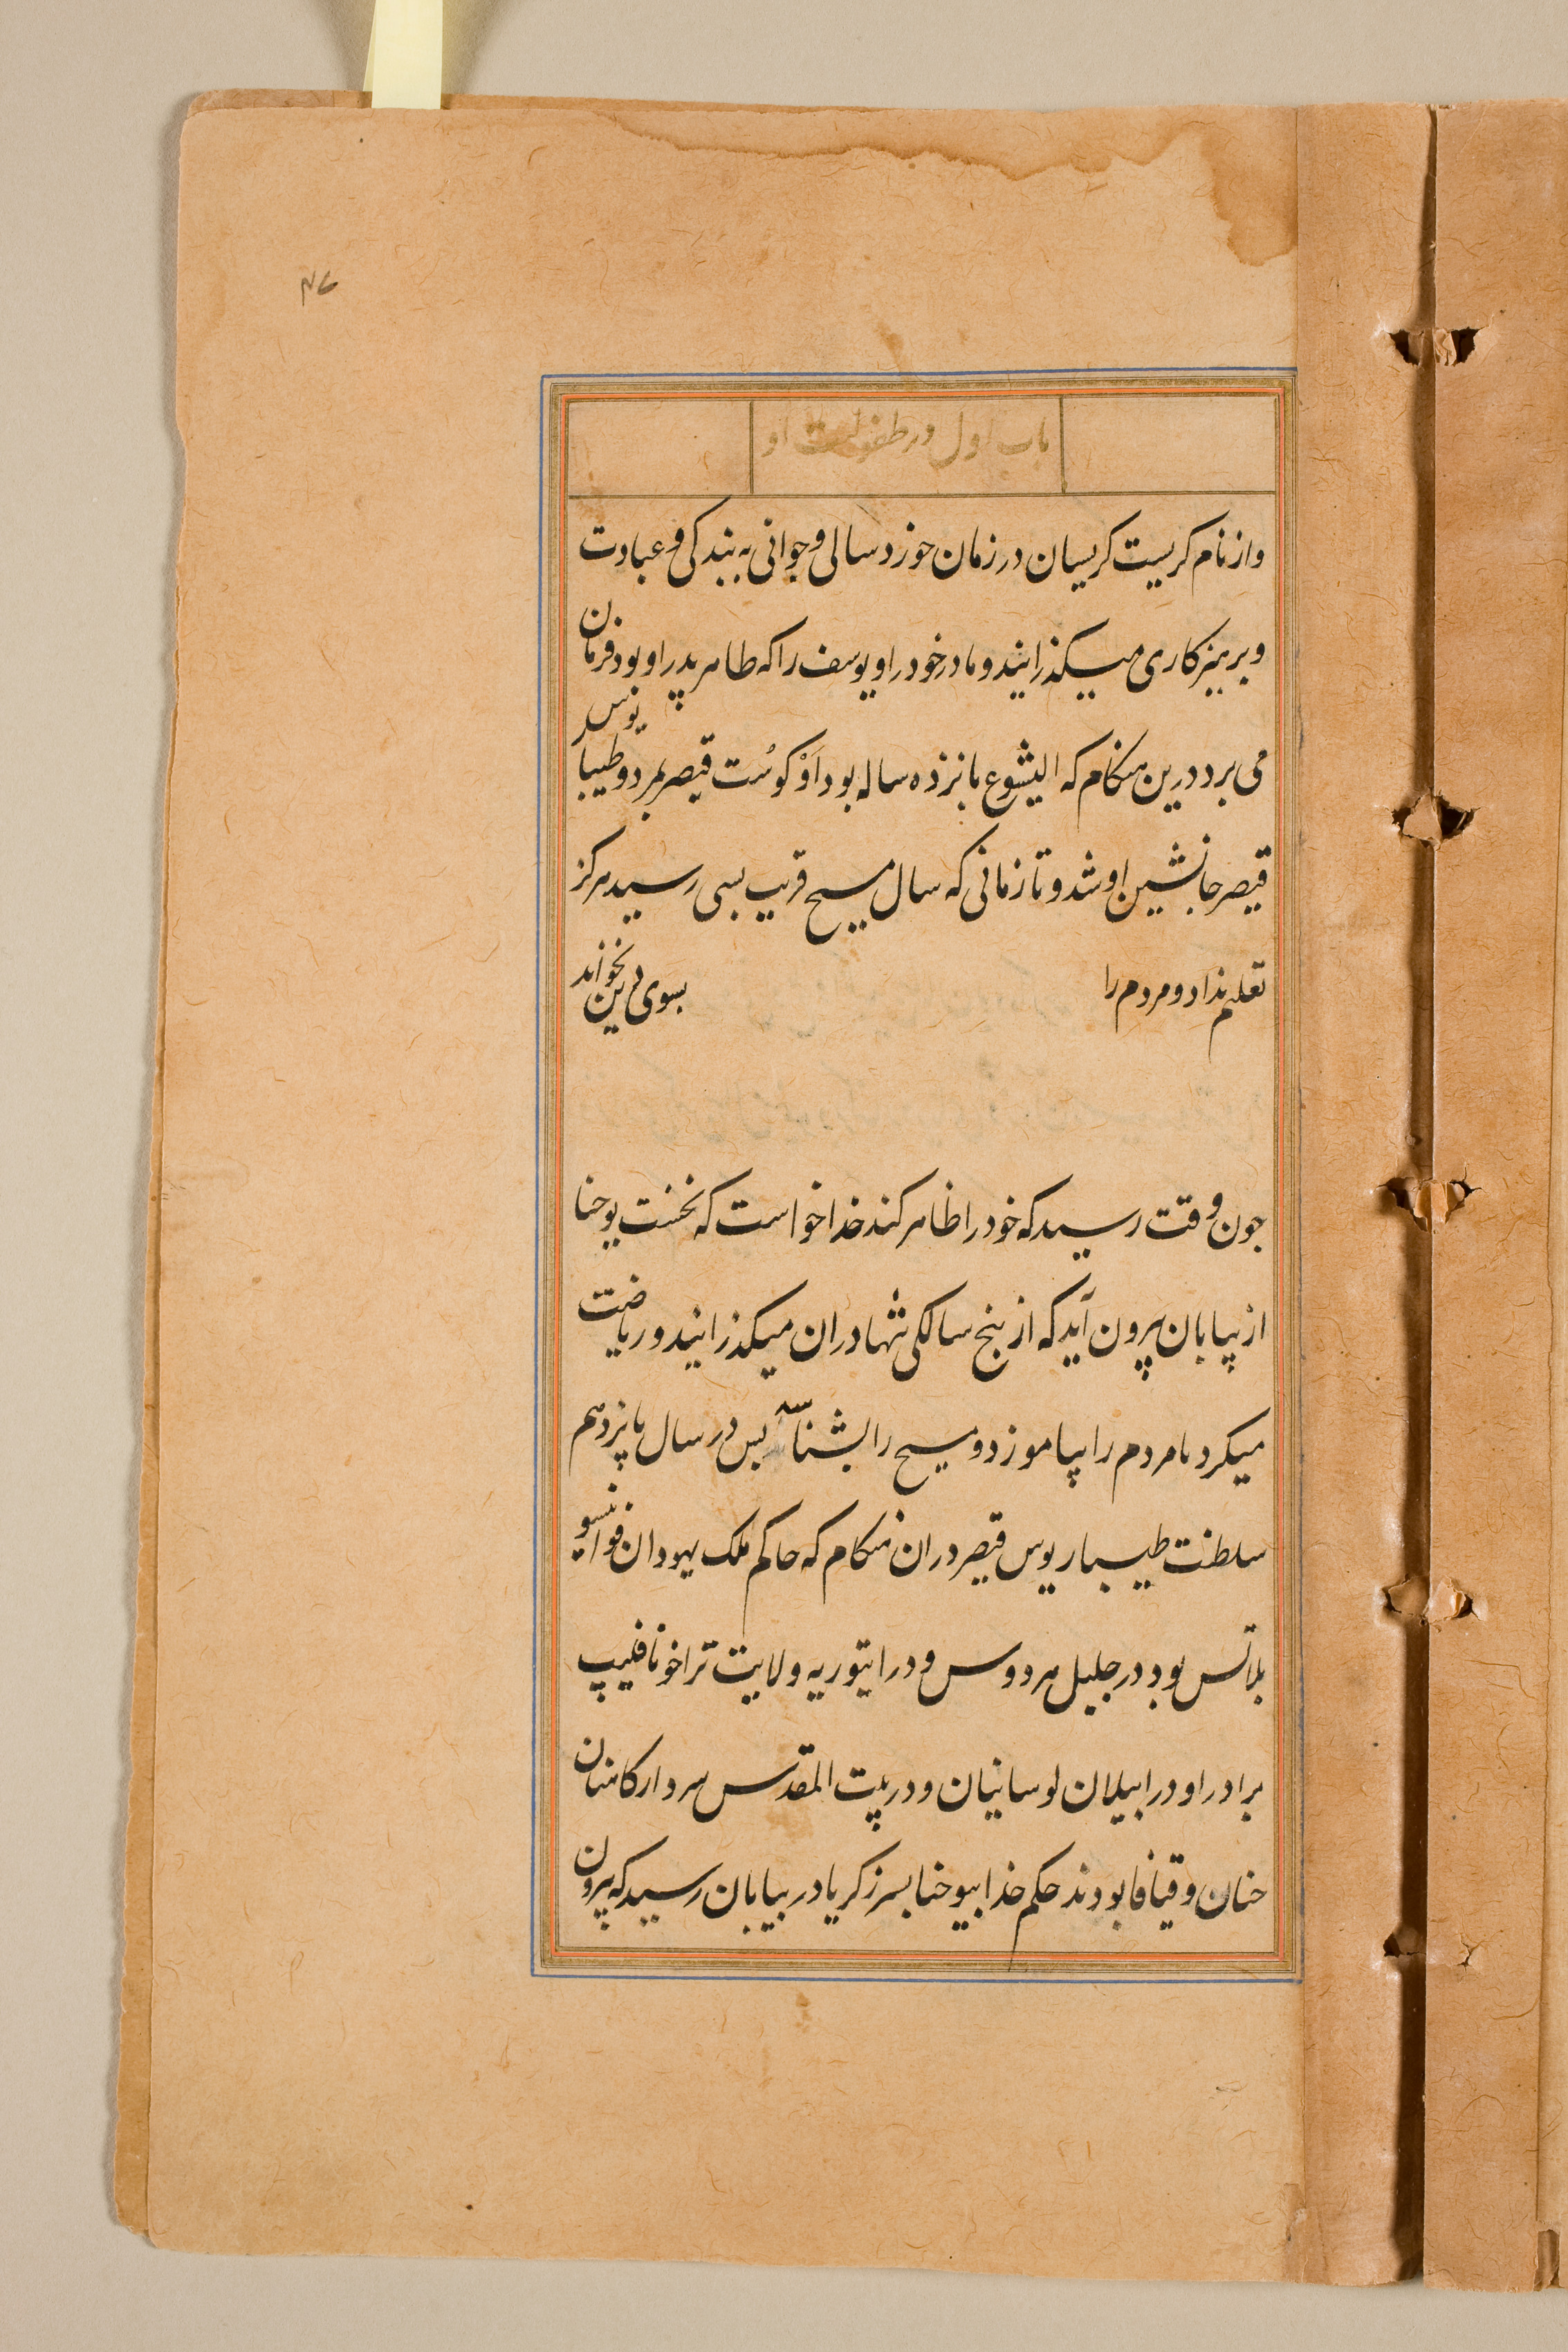 ۴۷
باب اول در طفولیت او
واز نام کریست کریسیان در زمان خورد سالی و جوانی به بندکی و عبادت
و برهیزکاری میکذرانید و مادر خود را و یوسف را که ظاهر پدر او بود فرمان
می برد درین هنکام که الیشوع بانزده ساله بود اَوْکوسْت قیصر بمرد و طیباریوس
قیصر جانشین او شد و تا زمانی که سال مسیح قریب بسی رسید هرکز
تعلیم نداد و مردم را بسوی دین نخواند
جون وقت رسید که خود را ظاهر کند خدا خواست که نخست یوحنا
از بیابان بیرون آید که از پنج سالکی تنها در ان میکذرانید و ریاضت
میکرد تا مردم را بیاموزد و مسیح را بشناسد بس در سال پانزدهم
سلطنت طیباریوس قیصر در ان هنکام که حاکم ملک یهودان فوانسیو
بلاتس بود در جلیل هردوس و در ایتوریه ولایت تراخونا فلیپ
برادر او در ابیلان لوسانیان و در بیت المقدس سردار کاهنان
حنان و قیافا بودند حکم خدا بیوحنا بسر زکریا در بیابان رسید که بیرون